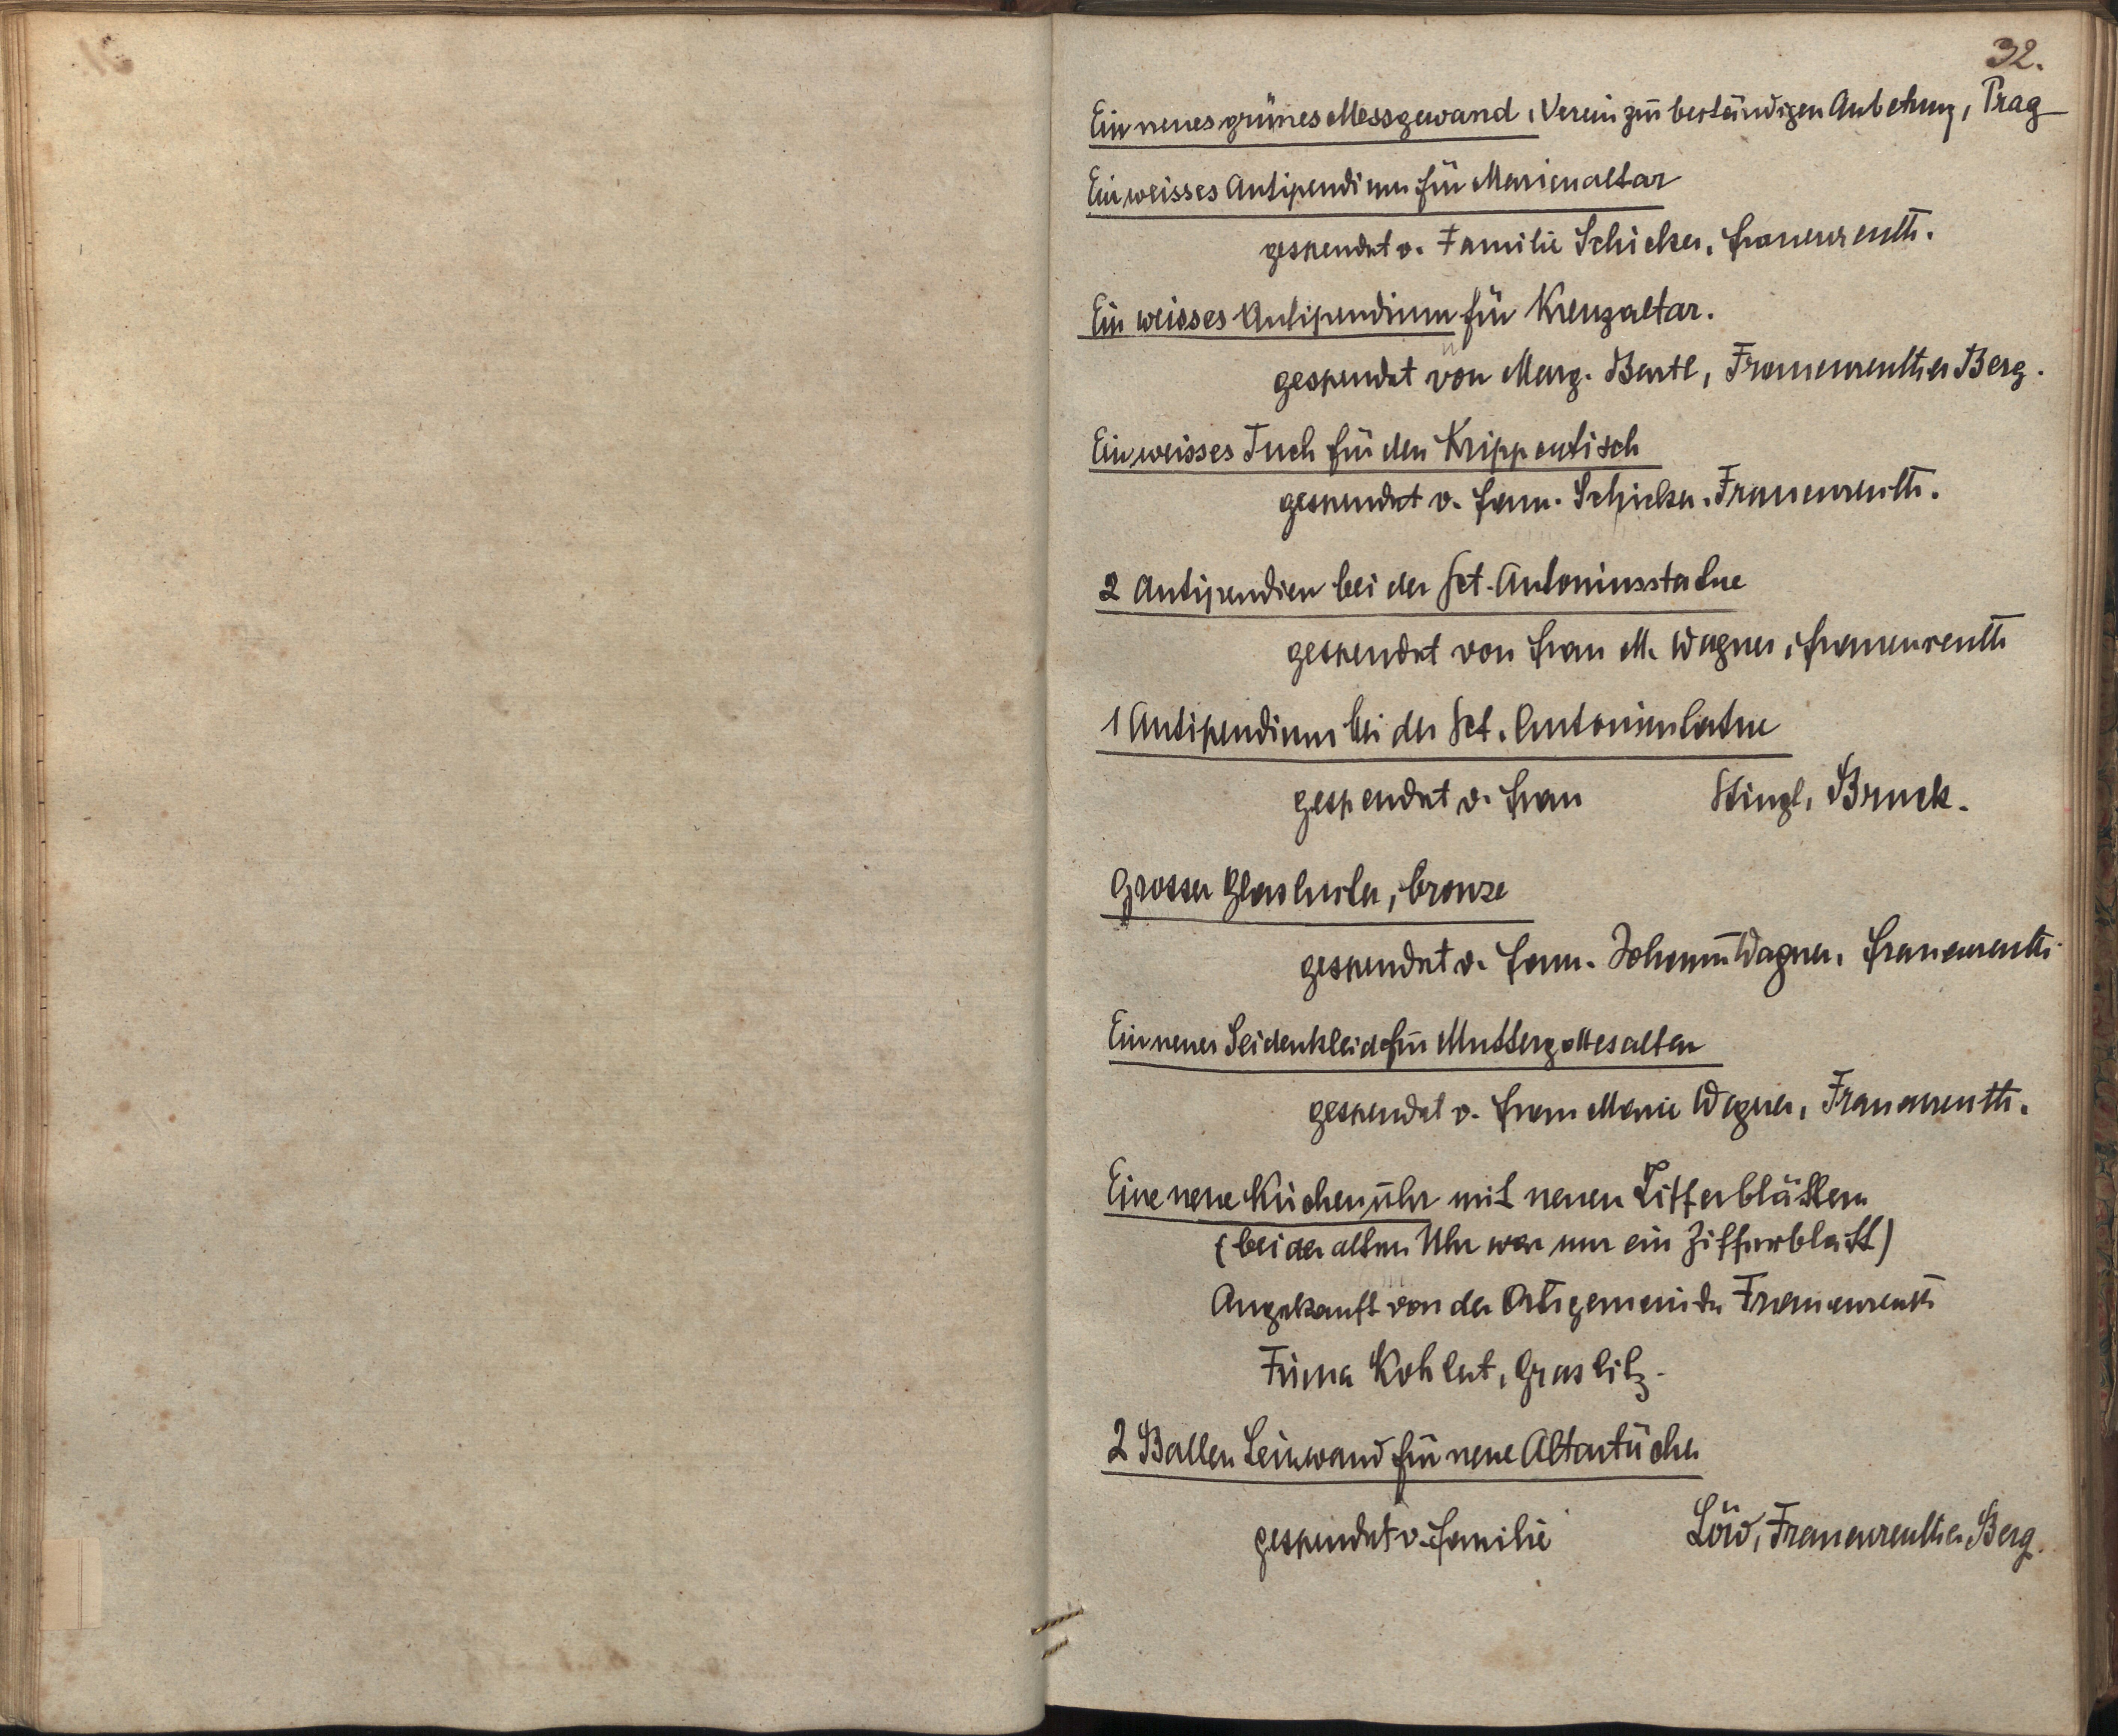 32.
Ein neues grünes Messgewand, Verein zur beständigen Anbetung, Prag
Ein weisses Antipendium für Marienaltar
gespendet v. Familie Schicker, Frauenreuth.
Ein weisses Antipendium für Kreuzaltar.
gespendet von Marg. Bartl, Frauenreuther Berg.
Ein weisses Tuch für den Krippentisch
gespendet v. Fam. Schicker, Frauenreuth.
2 Antipendien bei der Sct. Antoniusstatue
gespendet von Frau M. Wagner, Frauenreuth
1 Antipendium bei der Sct.
gespendet v. Frau Stingl, Bruck.
Grosser bronze
gespendet v. Fam. Johann Wagner, Frauenreuth.
Ein neues Seidenkleid für Muttergottesaltar
gespendet v. Frau Marie Wagner, Frauenreuth.
Eine neue Kirchenuhr mit neuen Zifferblättern
(bei der alten Uhr war nur ein Zifferblatt)
Angekauft von der Ortsgemeinde Frauenreuth
Firma Kohlert, Graslitz.
2 Ballen Leinwand für neue Altartücher
gespendet v. Familie Löw, Frauenreuther Berg.